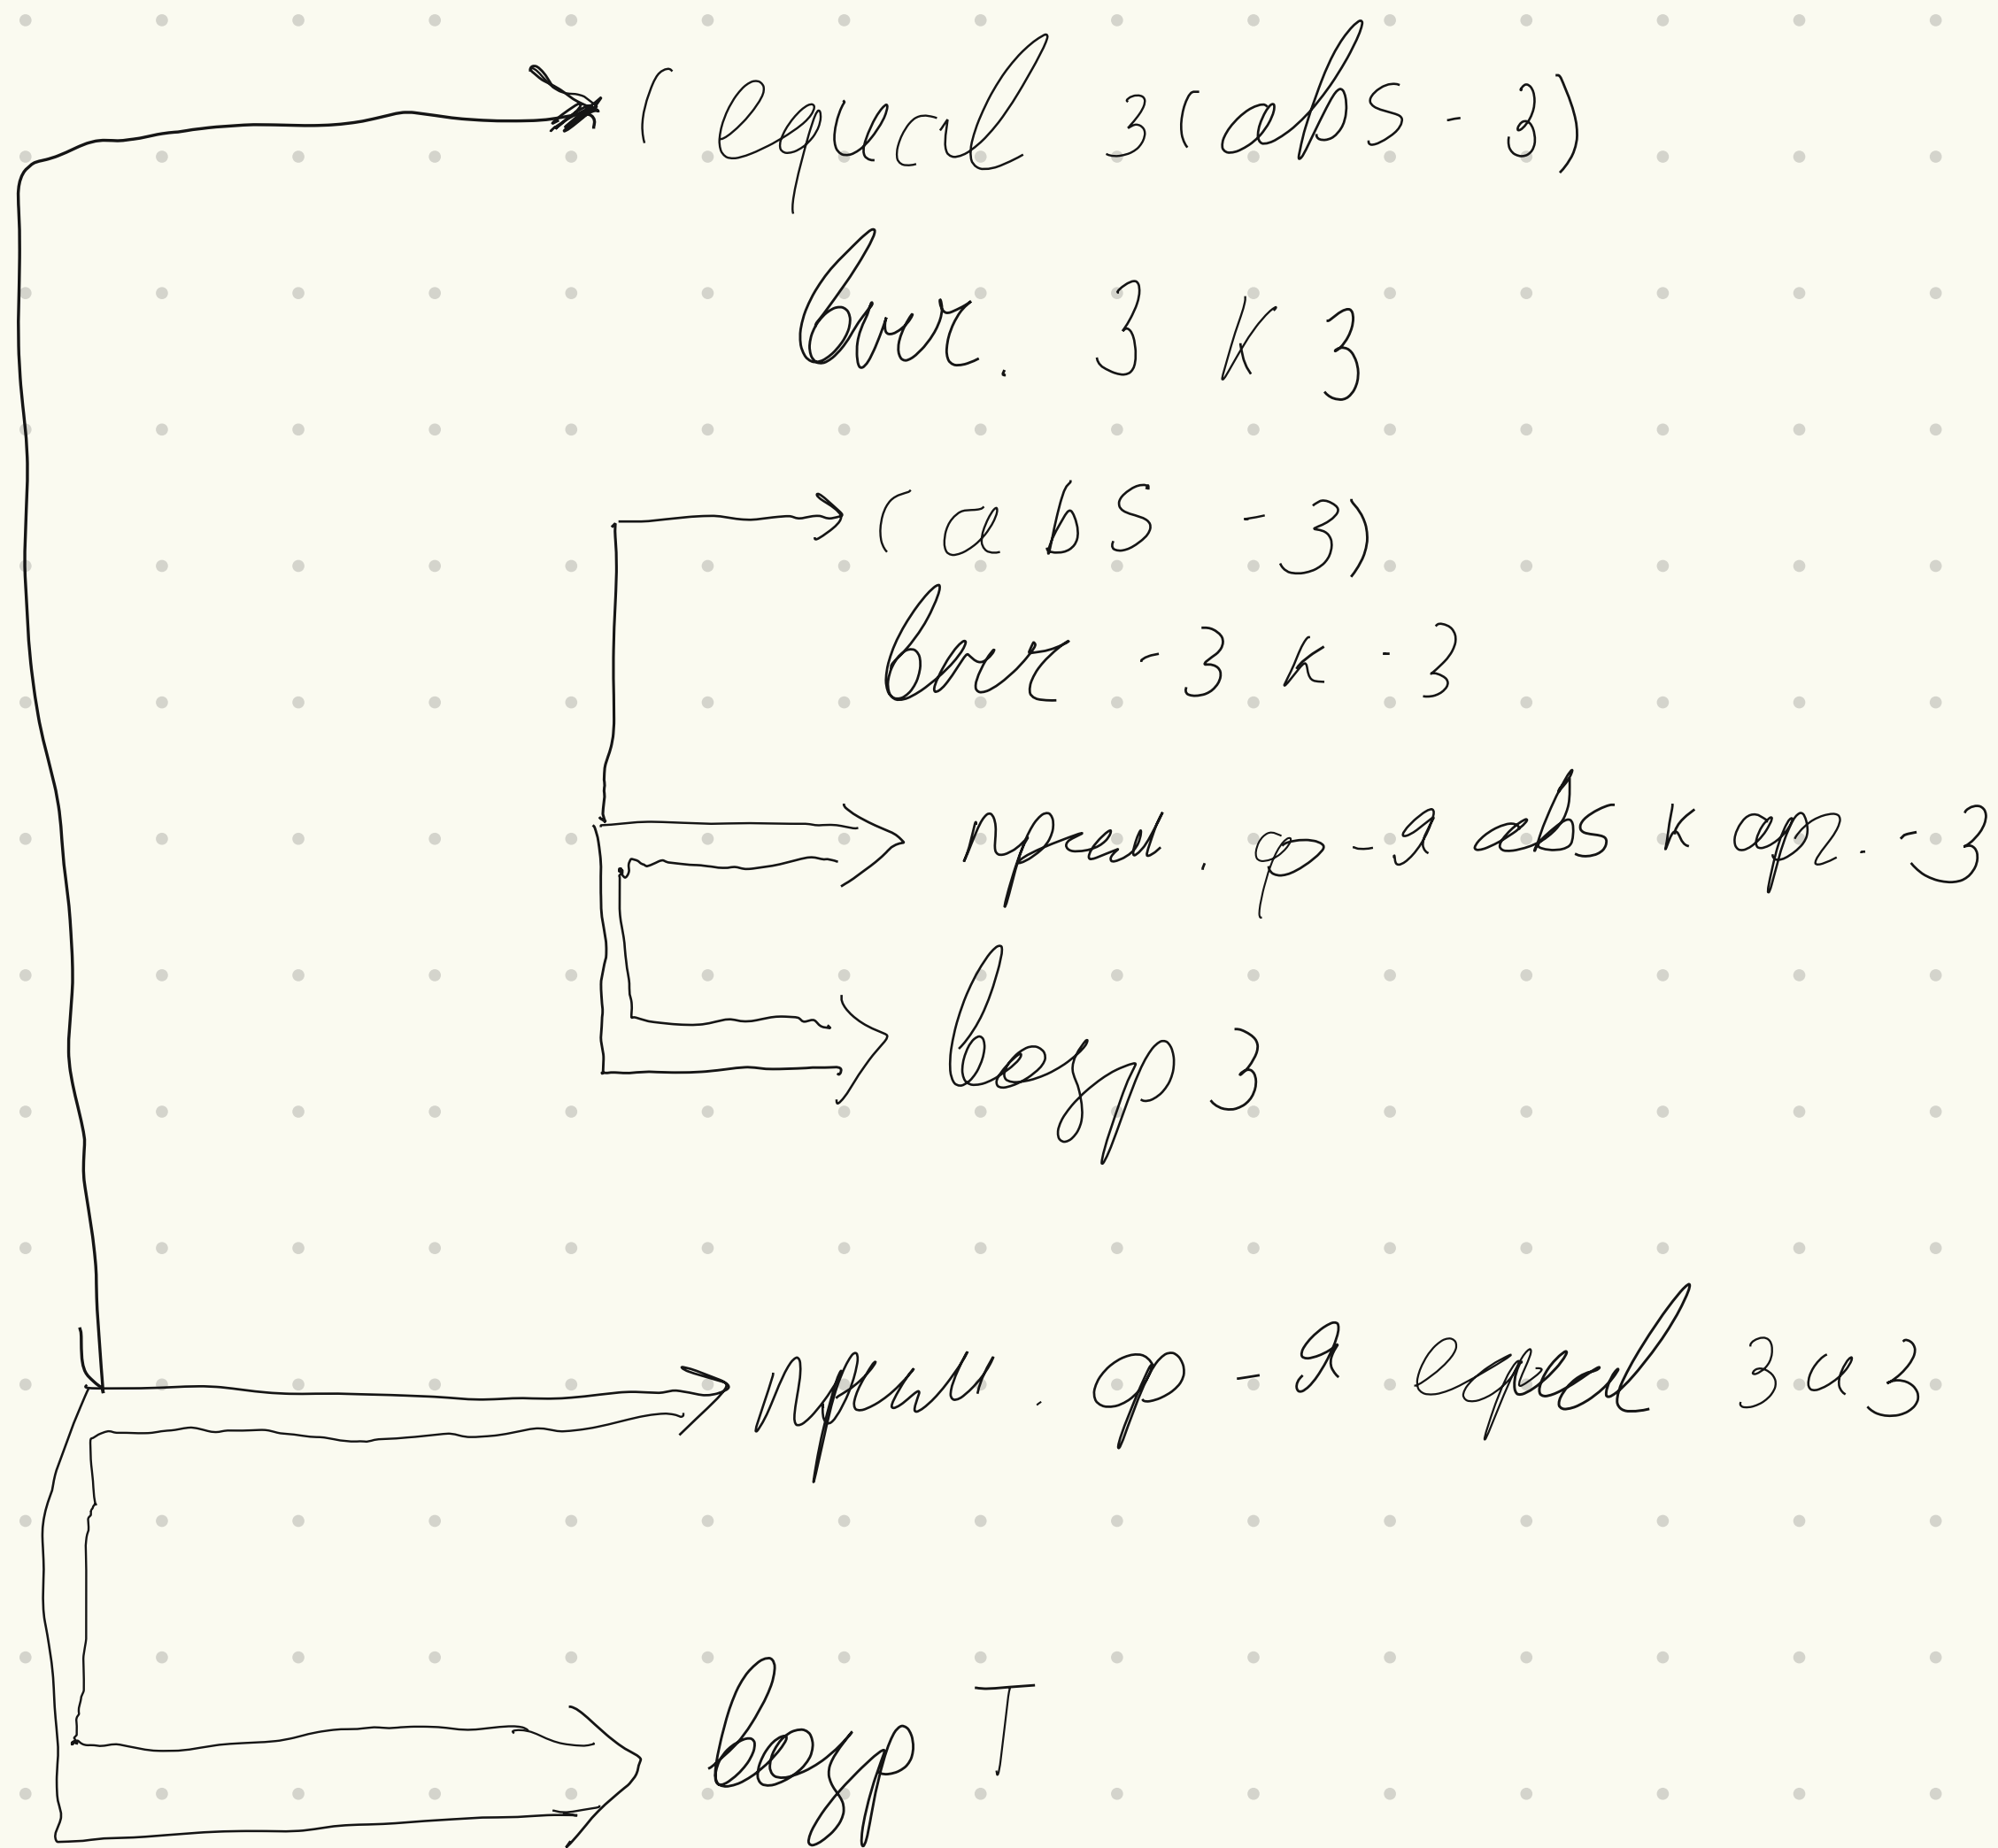 (equal 3 (abs - 3)
выч. 3 к 3
(abs -3)
выч -3 к -3
прим. ф-я abs к арг. -3
возвр 3
прим. ф-я equal 3 и 3
возвр T